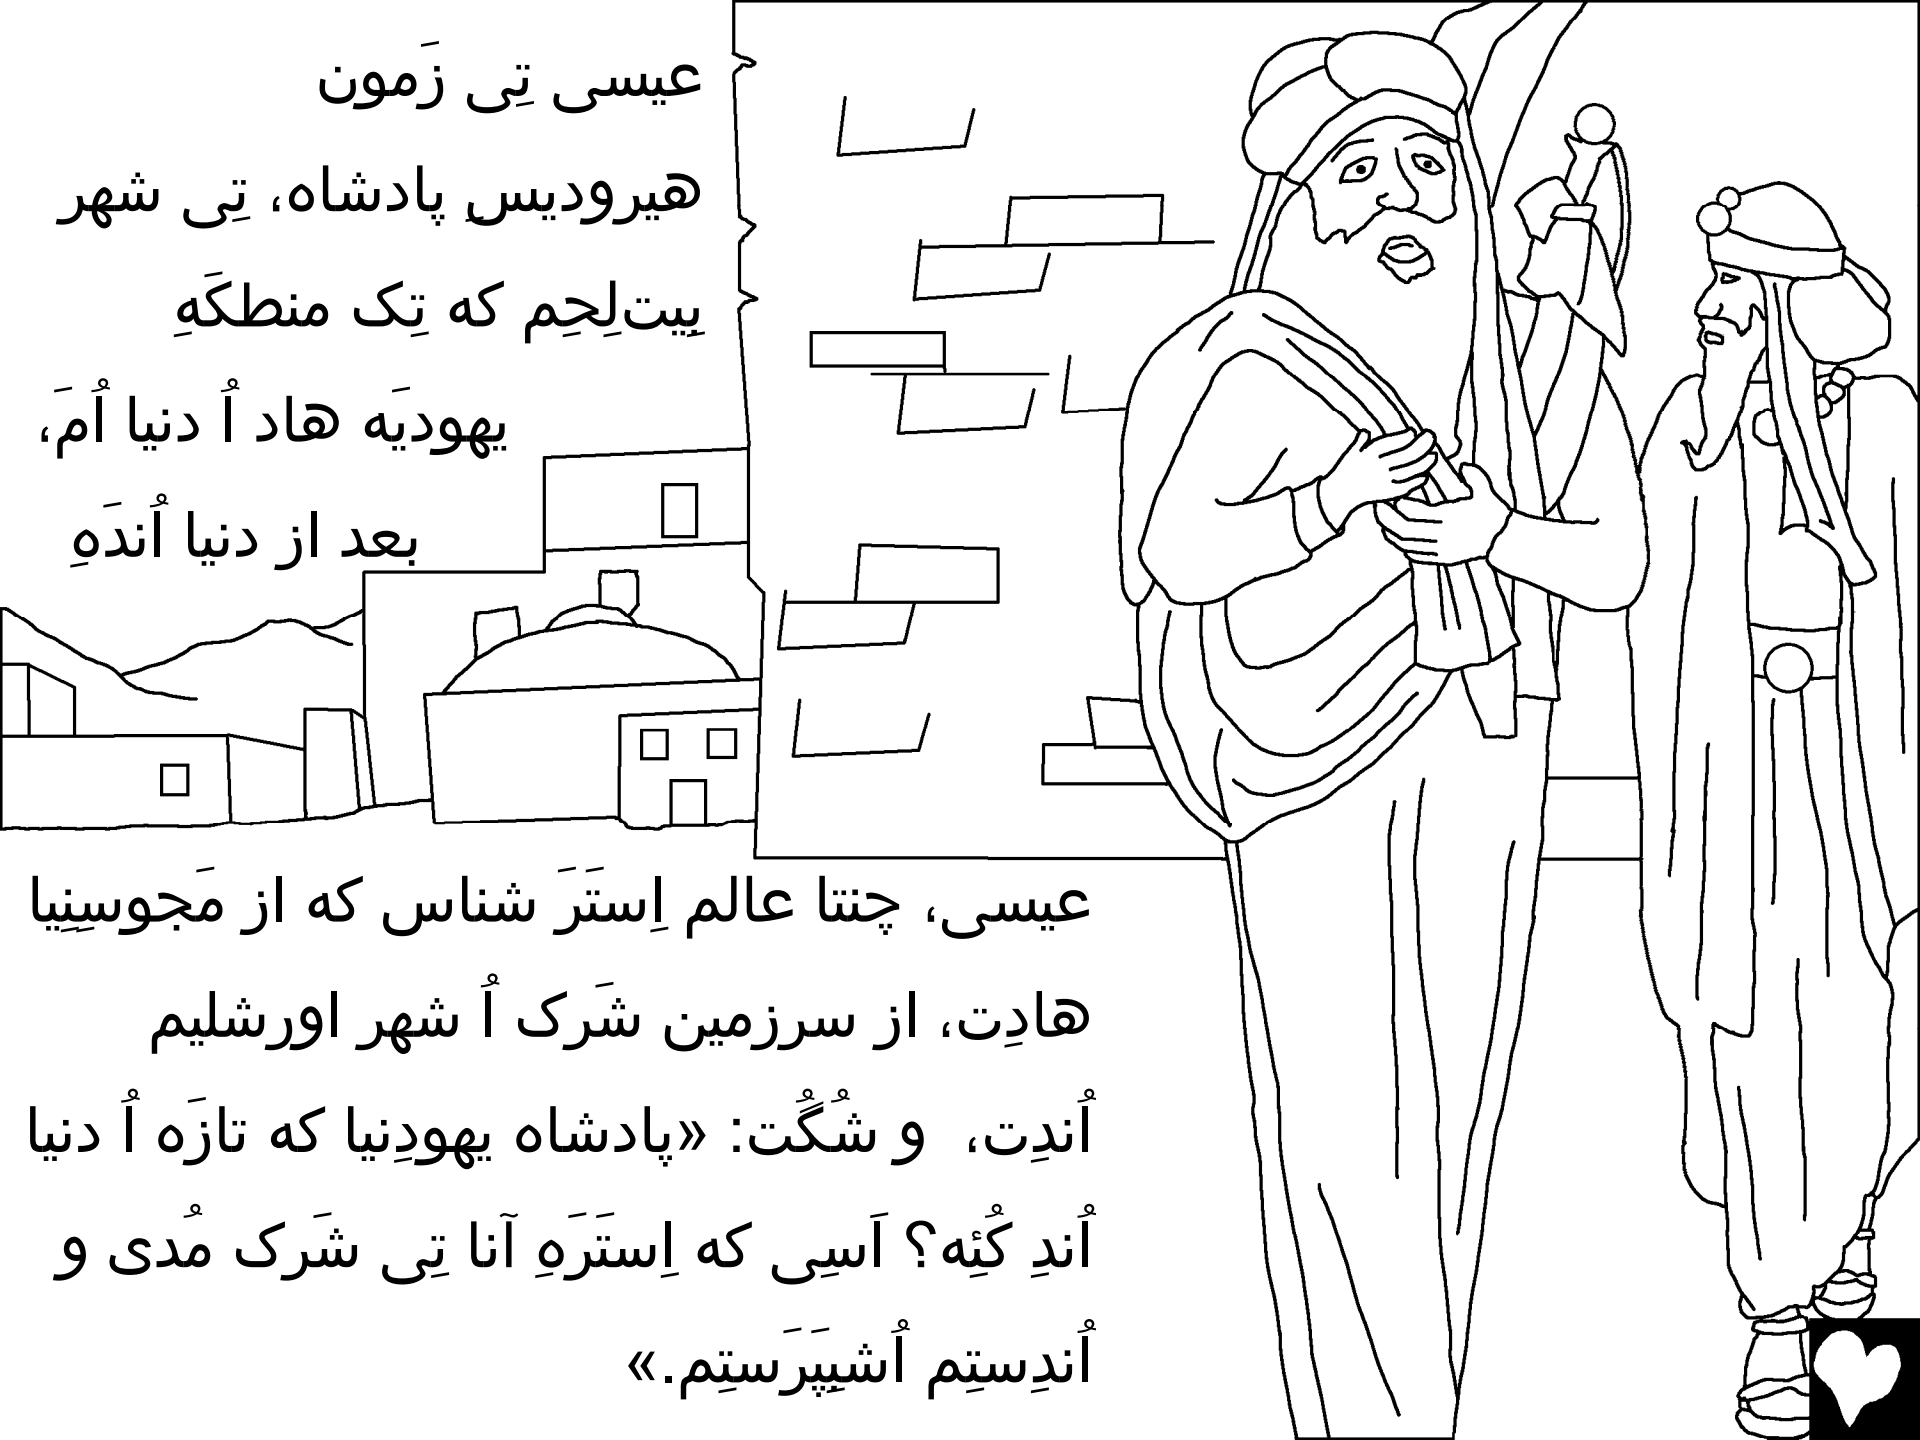 عیسی تِی زَمون
هیرودیسِ پادشاه، تِی شهر
بِیت‌لِحِم که تِک منطکَهِ
یهودیَه هاد اُ دنیا اُمَ،
بعد از دنیا اُندَهِ
عیسی، چنتا عالم اِستَرَ شناس که از مَجوسِنِیا
هادِت، از سرزمین شَرک اُ شهر اورشلیم
اُندِت، و شُگُت: «پادشاه یهودِنیا که تازَه اُ دنیا
اُندِ کُئِه؟ اَسِی که اِستَرَهِ آنا تِی شَرک مُدی و
اُندِستِم اُشبِپَرَستِم.»